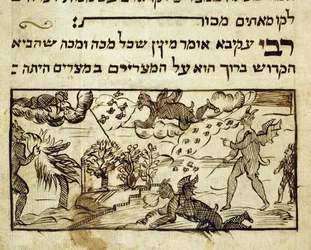 לקו מאתים מכות
רבי עקיבא אומר מינין שכל מכה ומכה שהביא
הקדוש ברוך הוא על המצריים במצרים היתה